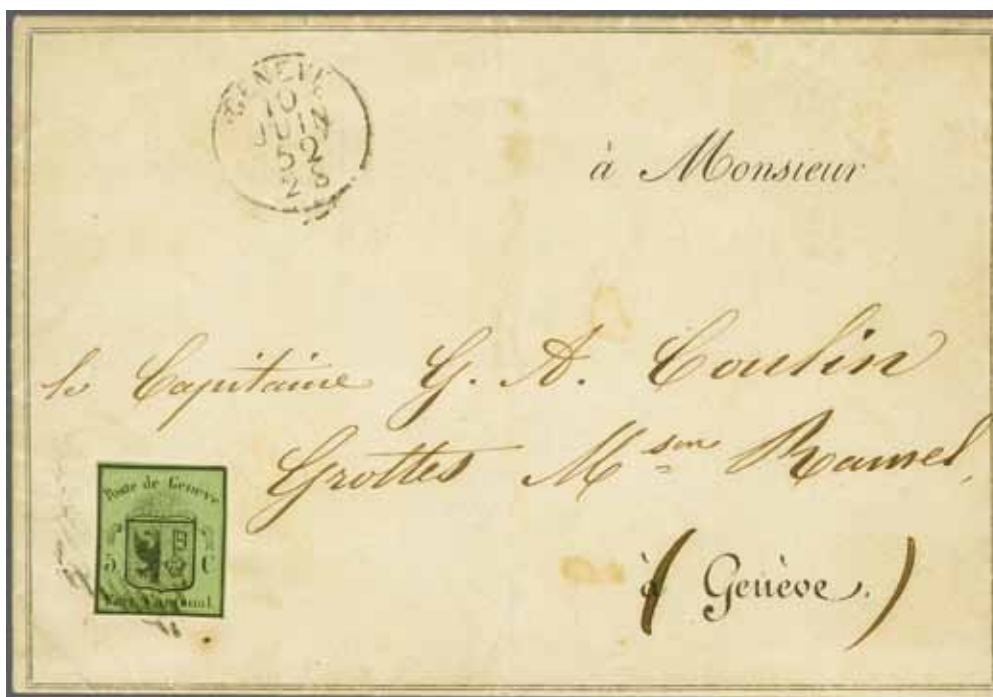 GENEVE
10
JUIN
52
2 S
à Monsieur
le Capitaine G. A. Coulin
Grottes M^son Ramel,
à (Genève.)
Poste de Genève
5 C
Port Cantonal